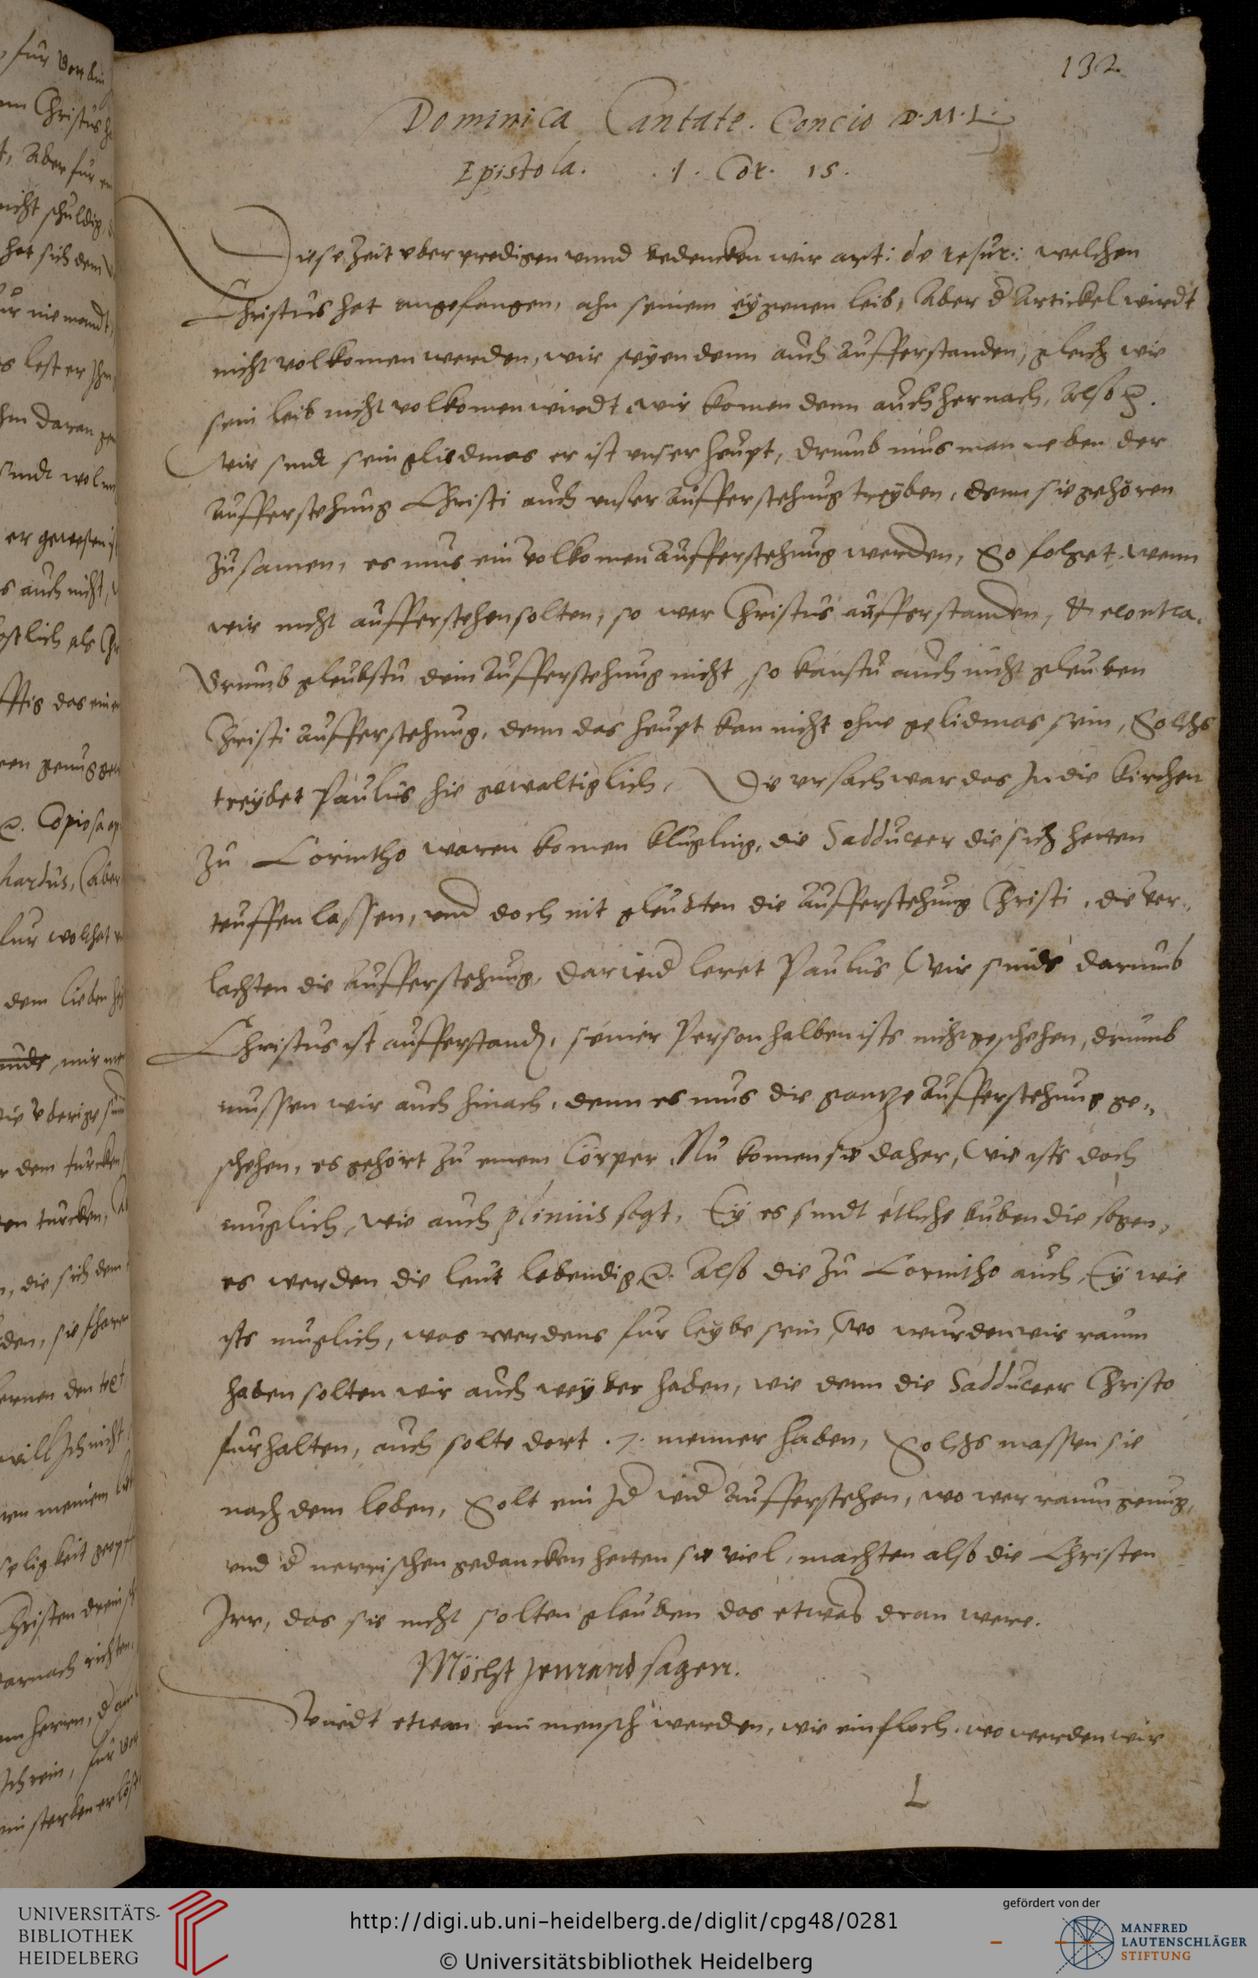 132.
Dominica Cantate. Concio D. M. L.
Epistola. .1. Cor. 15.
Diese Zeit vber predigen vnnd bedencken wir art: de resur: welchen
Christus hat angefangen, ahn seinem eygenen leib, Aber d Artickel wirdt
nicht volkomen werden, wir seyen denn auch aufferstanden, gleich wie
sein leib nicht volkomen wirdt wir komen denn auch hernach, Also
Wir sindt sein gliedmas er ist vnser heupt, drumb mus man neben der
aufferstehung Christi auch vnser aufferstehung treyben, denn sie gehören
zusamen, es mus ein volkomen aufferstehung werden, So folget. wenn
wir nicht aufferstehen solten, so wer Christus aufferstanden, & econtra.
Drumb gleubstu dein aufferstehung nicht so kanstu auch nicht gleuben
Christi aufferstehung, denn das heupt kan nicht ohne gelidmas sein, Solchs
treybet Paulus hie gewaltiglich, Die vrsach war das In die kirchen
zu Corintho waren komen klugling, die Sadduceer die sich hetten
teuffen lassen, vnd doch nit gleubten die aufferstehung Christi, die ver-
lachten die aufferstehung, darwid leret Paulus, Wir sinds darumb
Christus ist aufferstanden, seiner Person halben ists nicht geschehen, drumb
mussen wir auch hinach, denn es mus die gantze aufferstehung ge-
schehen, es gehört zu einem Corper, Nu komen sie daher, wie ists doch
muglich, wie auch plinius sagt, Ey es sindt etliche buben die sagen,
es werden die leut lebendig Also die zu Corintho auch, Ey wie
ists muglich, was werdens fur leybe sein, wo wurden wir raum
haben solten wir auch weyber haben, wie denn die Sadduceer Christo
furhalten, auch solte dort .7. menner haben, Solchs massen sie
nach dem leben, Solt ein Jd wid aufferstehen, wo wer raum genug,
vnd d nerrischen gedancken hetten sie viel, machten also die Christen
Irr, das sie nicht solten gleuben das etwas dran were.
Möcht jemand sagen.
Wirdt etwan ein mensch werden, wie ein floch, wo werden wir
L
UNIVERSITÄTS-
BIBLIOTHEK
HEIDELBERG
http://digi.ub.uni-heidelberg.de/diglit/cpg48/0281
© Universitätsbibliothek Heidelberg
gefördert von der
MANFRED
LAUTENSCHLÄGER
STIFTUNG